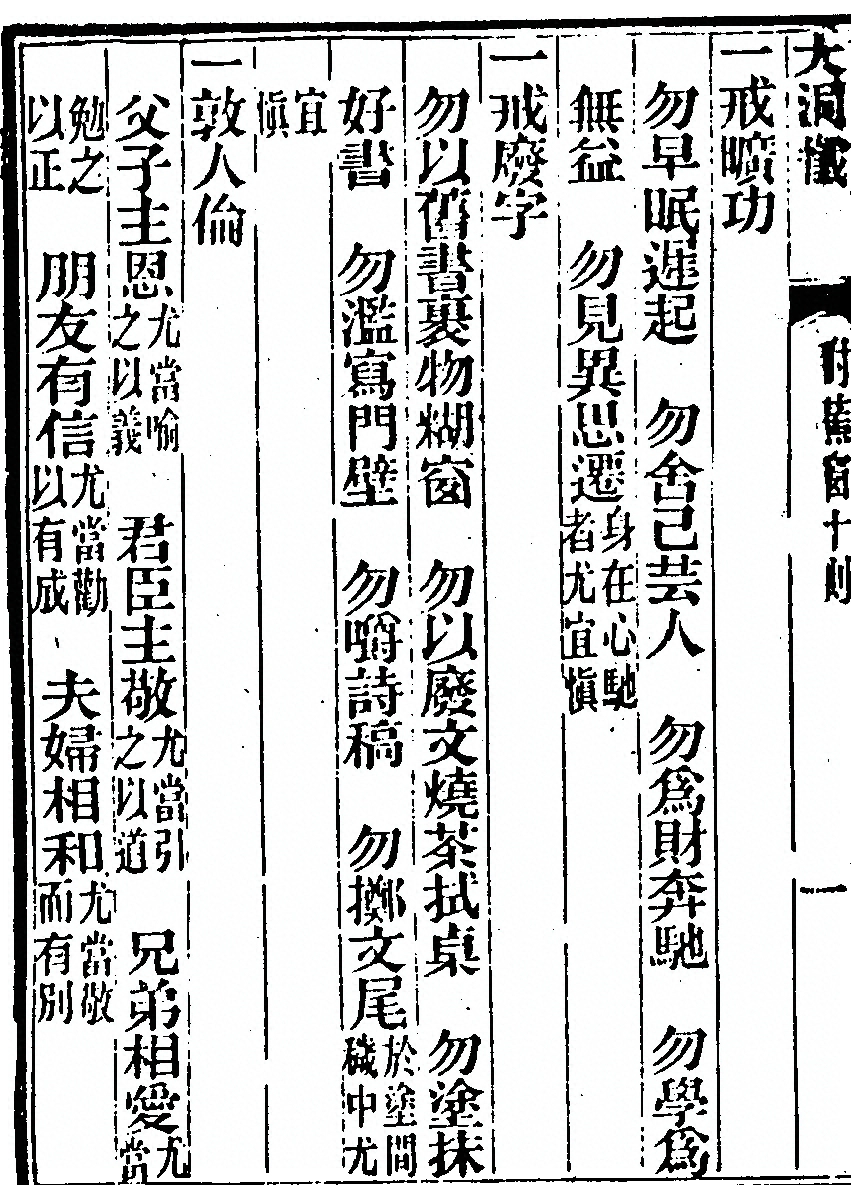 大洞懺 附蕉窗十則 一
一戒曠功
勿早眠遲起 勿舍己芸人 勿為財奔馳 勿學為
無益 勿見異思遷身在心馳者尤宜慎
一戒廢字
勿以舊書裹物糊窗 勿以廢文燒茶拭桌 勿塗抹
好書 勿濫寫門壁 勿嚼詩稿 勿擲文尾於塗間穢中尤
宜慎
一敦人倫
父子主恩尤當喻之以義 君臣主敬尤當引之以道 兄弟相愛尤當
勉之以正 朋友有信尤當勸以有成 夫婦相和尤當敬而有別